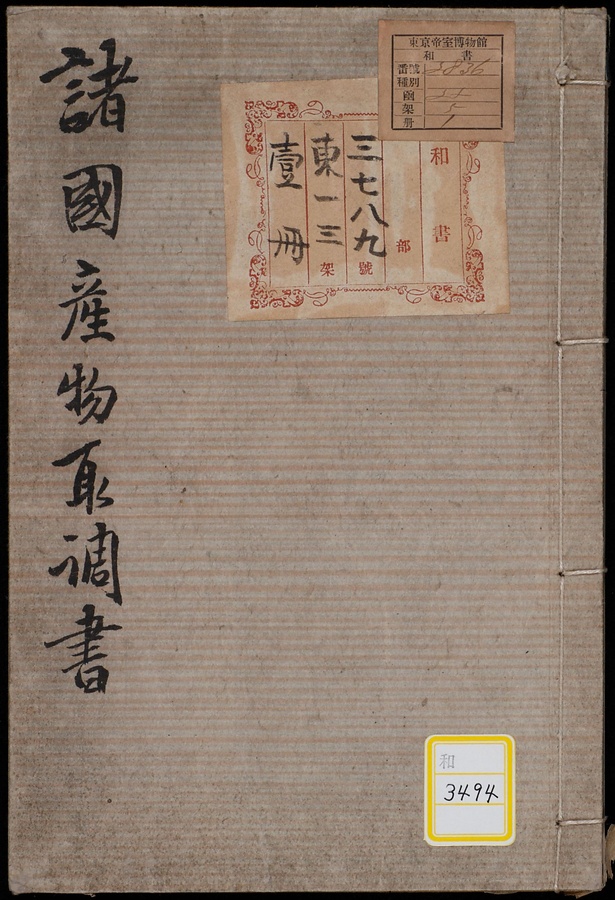 東京帝室博物館
和書
番號 2836
種別
函
架 5
册 1
和書
部
三七八九號
東一三架
壹冊
諸國産物取調書
和
3494